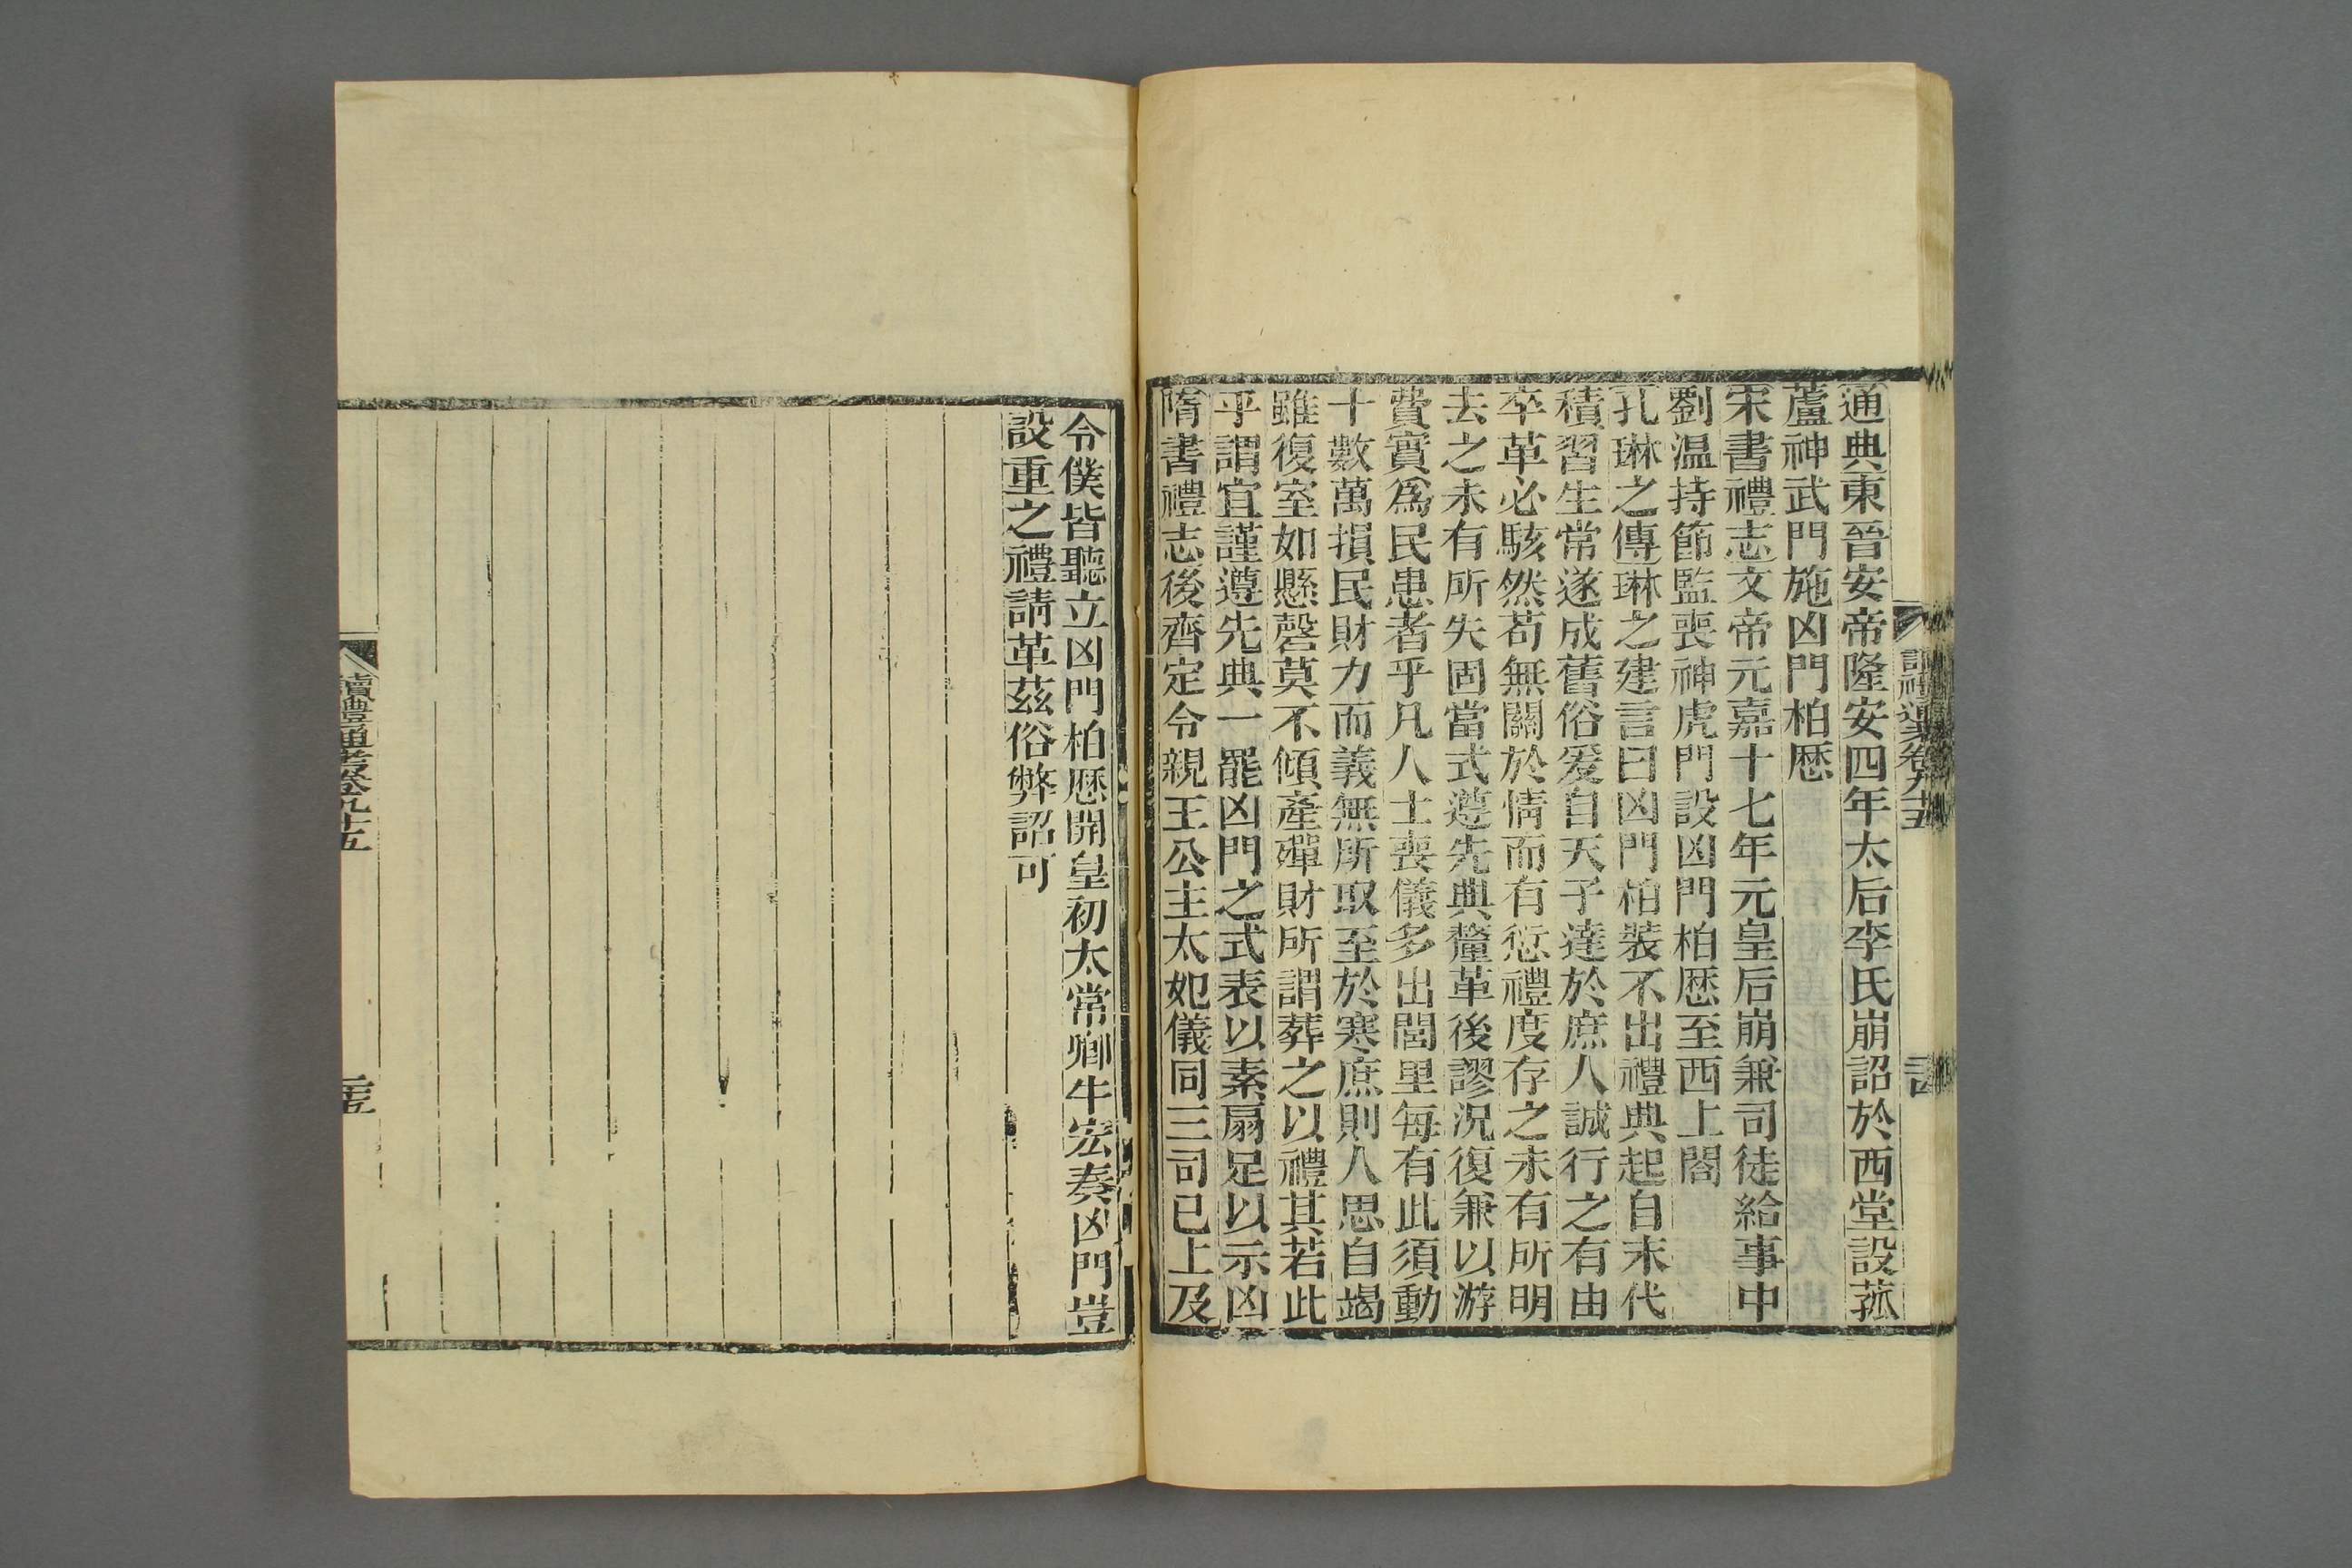 通典東晉安帝隆安四年太后李氏崩詔於西堂設菰
蘆神武門施凶門柏歴
宋書禮志文帝元嘉十七年元皇后崩兼司徒給事中
劉温持節監喪神虎門設凶門柏歴至西上閤
孔琳之傳琳之建言曰凶門柏裝不出禮典起自末代
積習生常遂成舊俗爰自天子達於庶人誠行之有由
卒革必駭然苟無關於情而有愆禮度存之未有所明
去之未有所失固當式遵先典釐革後謬況復兼以游
費實爲民患者乎凡人士喪儀多出閭里每有此須動
十數萬損民財力而義無所取至於寒庶則人思自竭
雖復室如懸磬莫不傾產殫財所謂葬之以禮其若此
乎謂宜謹遵先典一罷凶門之式表以素扇足以示凶
隋書禮志後齊定令親王公主太妃儀同三司已上及
令僕皆聽立凶門柏歴開皇初太常卿牛宏奏凶門豈
設重之禮請革茲俗弊詔可
讀禮通考卷九十五